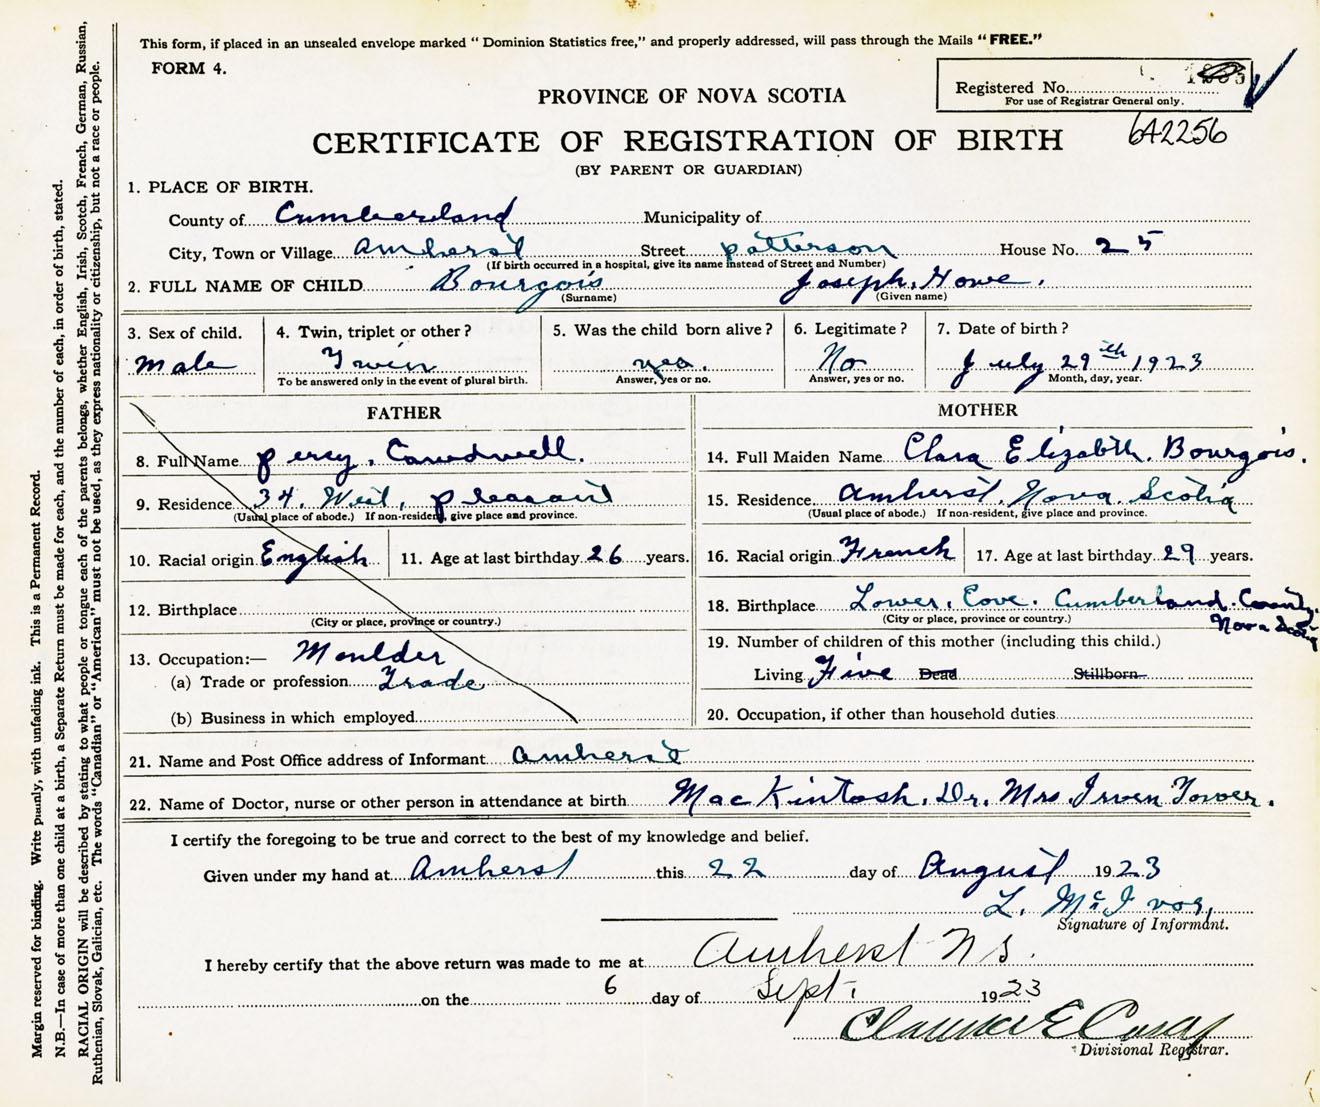 This form, if placed in an unsealed envelope marked " Dominion Statistics free," and properly addressed, will pass through the Mails " FREE."
FORM 4.
PROVINCE OF NOVA SCOTIA
Registered No.
For use of Registrar General only.
642256
CERTIFICATE OF REGISTRATION OF BIRTH
(BY PARENT OR GUARDIAN)
1. PLACE OF BIRTH.
County of Cumberland Municipality of
City, Town or Village Amherst Street patterson House No. 25
(If birth occurred in a hospital, give its name instead of Street and Number)
2. FULL NAME OF CHILD Bourgois Joseph. Howe.
(Surname) (Given name)
3. Sex of child. 4. Twin, triplet or other? 5. Was the child born alive? 6. Legitimate? 7. Date of birth?
male Twin yes. No July 29th 1923
To be answered only in the event of plural birth. Answer, yes or no. Answer, yes or no. Month, day, year.
FATHER
8. Full Name percy. Cawdwell.
9. Residence 34. West, pleasant
(Usual place of abode.) If non-resident, give place and province.
10. Racial origin English 11. Age at last birthday 26 years.
12. Birthplace
(City or place, province or country.)
13. Occupation:— Moulder
(a) Trade or profession Trade
(b) Business in which employed
MOTHER
14. Full Maiden Name Clara Elizabith. Bourgois.
15. Residence Amherst. Nova. Scotia
(Usual place of abode.) If non-resident, give place and province.
16. Racial origin French 17. Age at last birthday 29 years.
18. Birthplace Lower. Cove. Cumberland. County.
(City or place, province or country.) Nova Scotia
19. Number of children of this mother (including this child.)
Living Five Dead Stillborn
20. Occupation, if other than household duties
21. Name and Post Office address of Informant Amherst
22. Name of Doctor, nurse or other person in attendance at birth MacKintosh. Dr. Mrs Irven Tower.
I certify the foregoing to be true and correct to the best of my knowledge and belief.
Given under my hand at Amherst this 22 day of August 1923
L. McIvor,
Signature of Informant.
I hereby certify that the above return was made to me at Amherst N S.
on the 6 day of Sept. 1923
Clarence E Casey
Divisional Registrar.
Margin reserved for binding. Write plainly, with unfading ink. This is a Permanent Record.
N.B.—In case of more than one child at a birth, a Separate Return must be made for each, and the number of each, in order of birth, stated.
RACIAL ORIGIN will be described by stating to what people or tongue each of the parents belongs, whether English, Irish, Scotch, French, German, Russian,
Ruthenian, Slovak, Galician, etc. The words "Canadian" or "American" must not be used, as they express nationality or citizenship, but not a race or people.